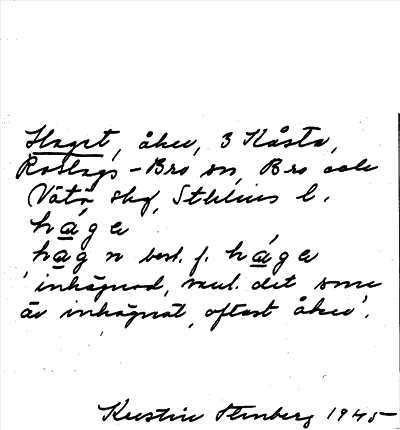 Haget, åker, 3 Kåsta,
Roslags-Bro sn, Bro och
Vätö skg, Sthlms l.
hágα
hαg n best. f. hágα
'inhägnad, mul. det som
är inhägnat, oftast åker'.
Kerstin Stenberg 1945